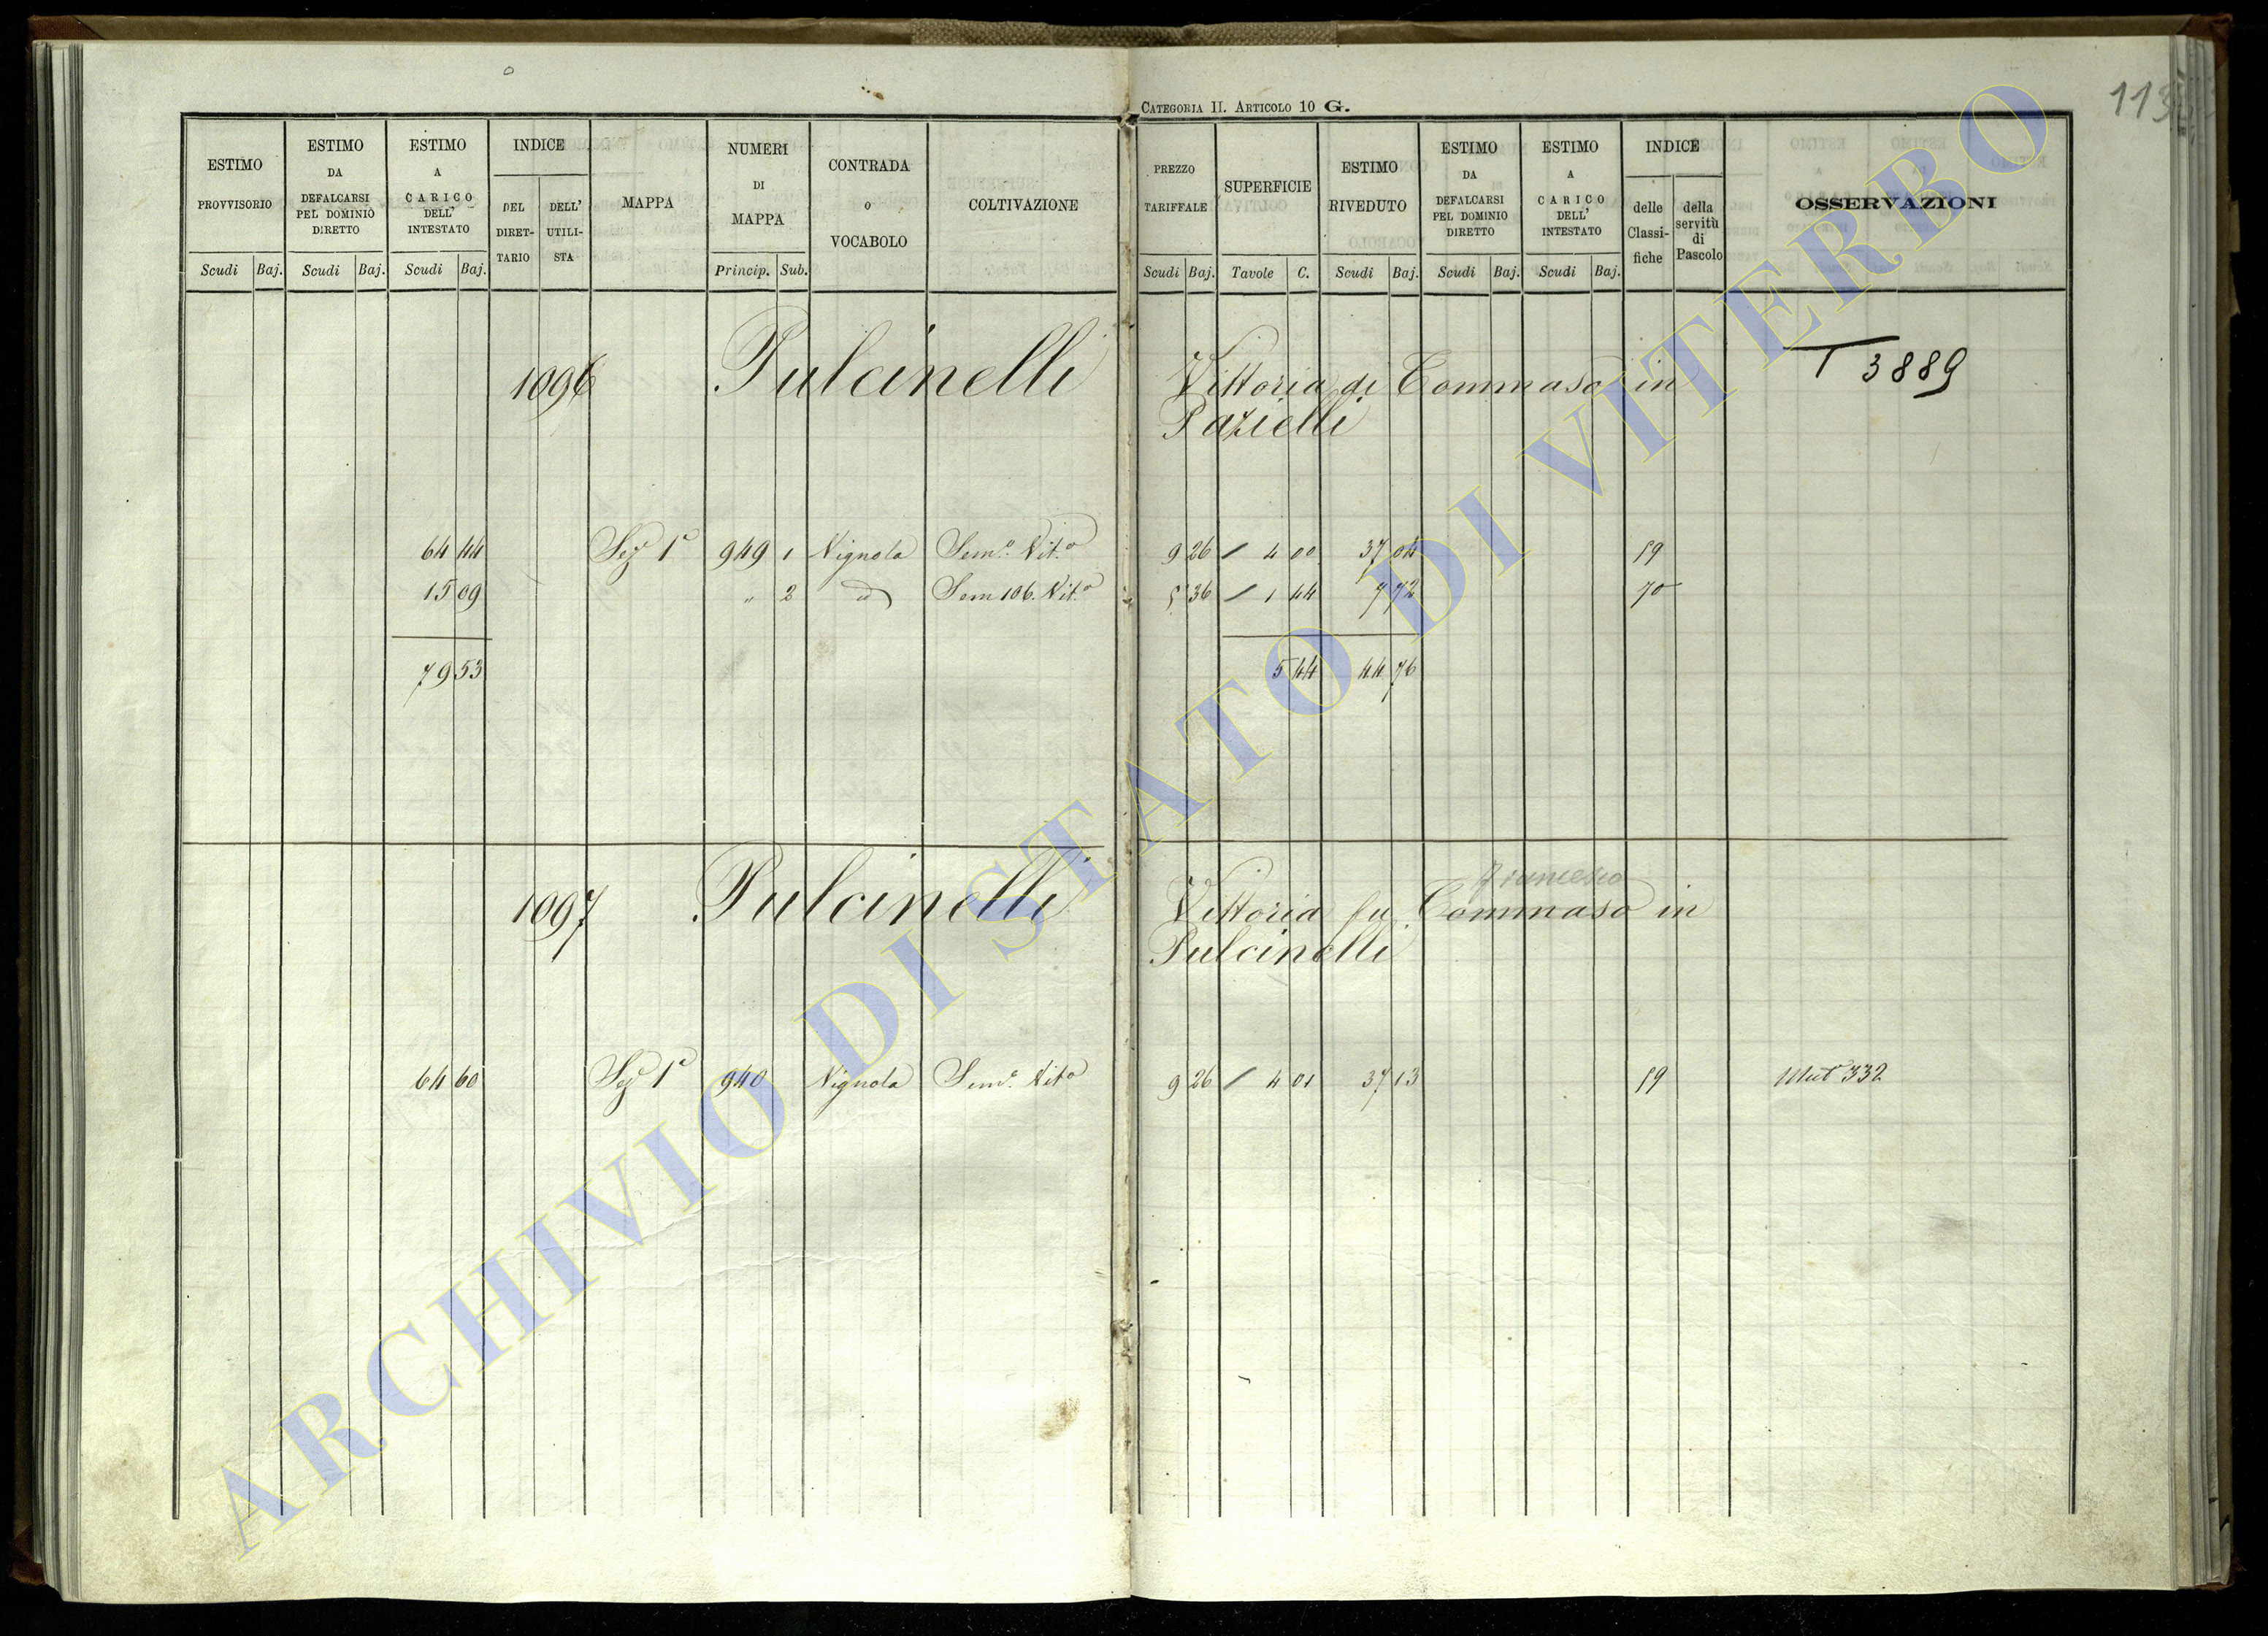 CATEGORIA II. ARTICOLO 10 G.
ESTIMO PROVVISORIO
ESTIMO DA DEFALCARSI PEL DOMINIO DIRETTO
ESTIMO A CARICO DELL' INTESTATO
INDICE
DEL DIRETTARIO
DELL' UTILISTA
MAPPA
NUMERI DI MAPPA
CONTRADA O VOCABOLO
COLTIVAZIONE
PREZZO TARIFFALE
SUPERFICIE
ESTIMO RIVEDUTO
ESTIMO DA DEFALCARSI PEL DOMINIO DIRETTO
ESTIMO A CARICO DELL' INTESTATO
INDICE
delle Classifiche
della servitù di Pascolo
OSSERVAZIONI
Scudi Baj. Scudi Baj. Scudi Baj. Princip. Sub. Scudi Baj. Tavole C. Scudi Baj. Scudi Baj. Scudi Baj.
1096 Pulcinelli Vittoria di Tommaso in T 3889
Pazielli
64 44 Sez.e 1a 949 1 Vignola Sem.o Vit.o 9 26 / 4 00 37 04 59
15 09 " 2 d Sem 106. Vit.o 5 36 / 1 44 7 72 70
79 53 5 44 44 76
Francesco
1097 Pulcinelli Vittoria fu Tommaso in
Pulcinelli
64 60 Sez.e 1a 940 Vignola Sem.o Vit.o 9 26 / 4 01 37 13 59 Mut 332
ARCHIVIO DI STATO DI VITERBO